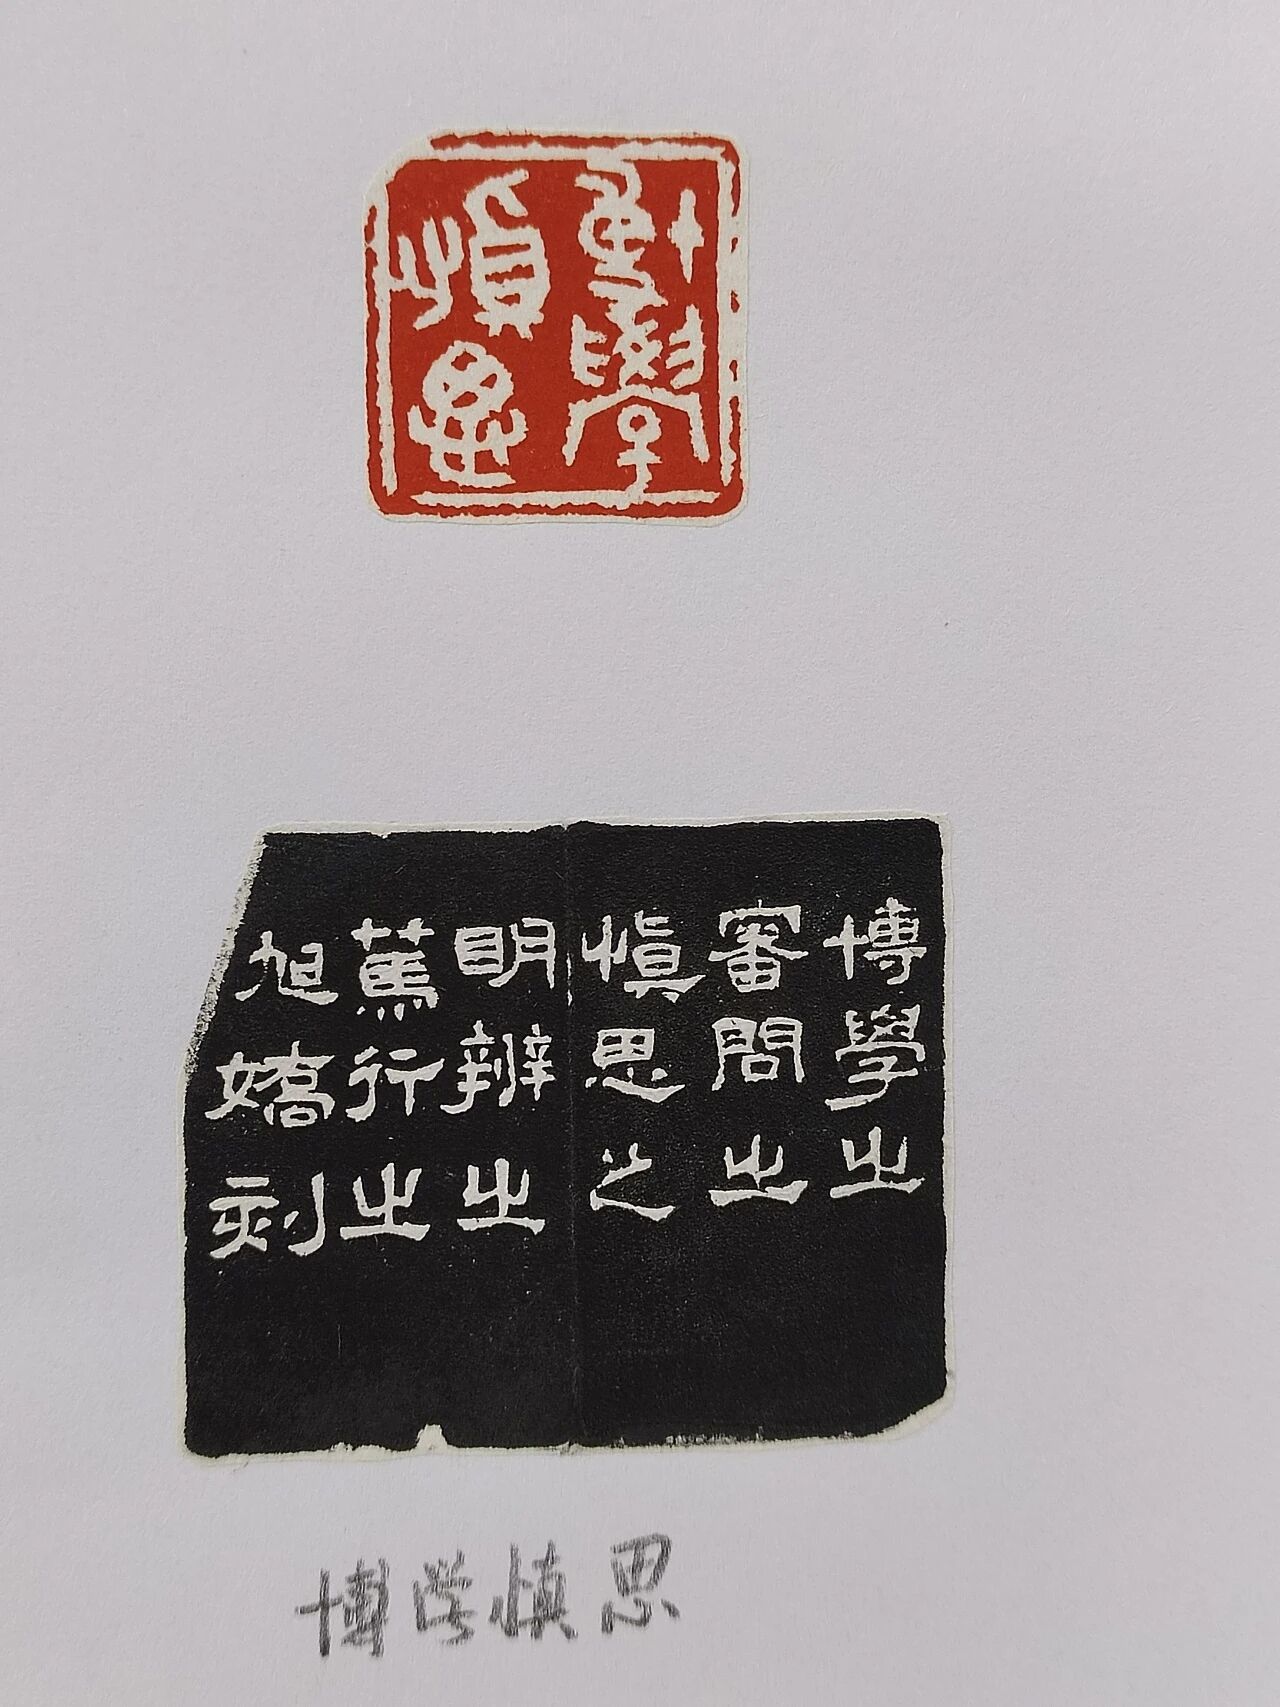 博學
慎思
博學之
審問之
慎思之
明辨之
篤行之
旭嬌刻
博学慎思